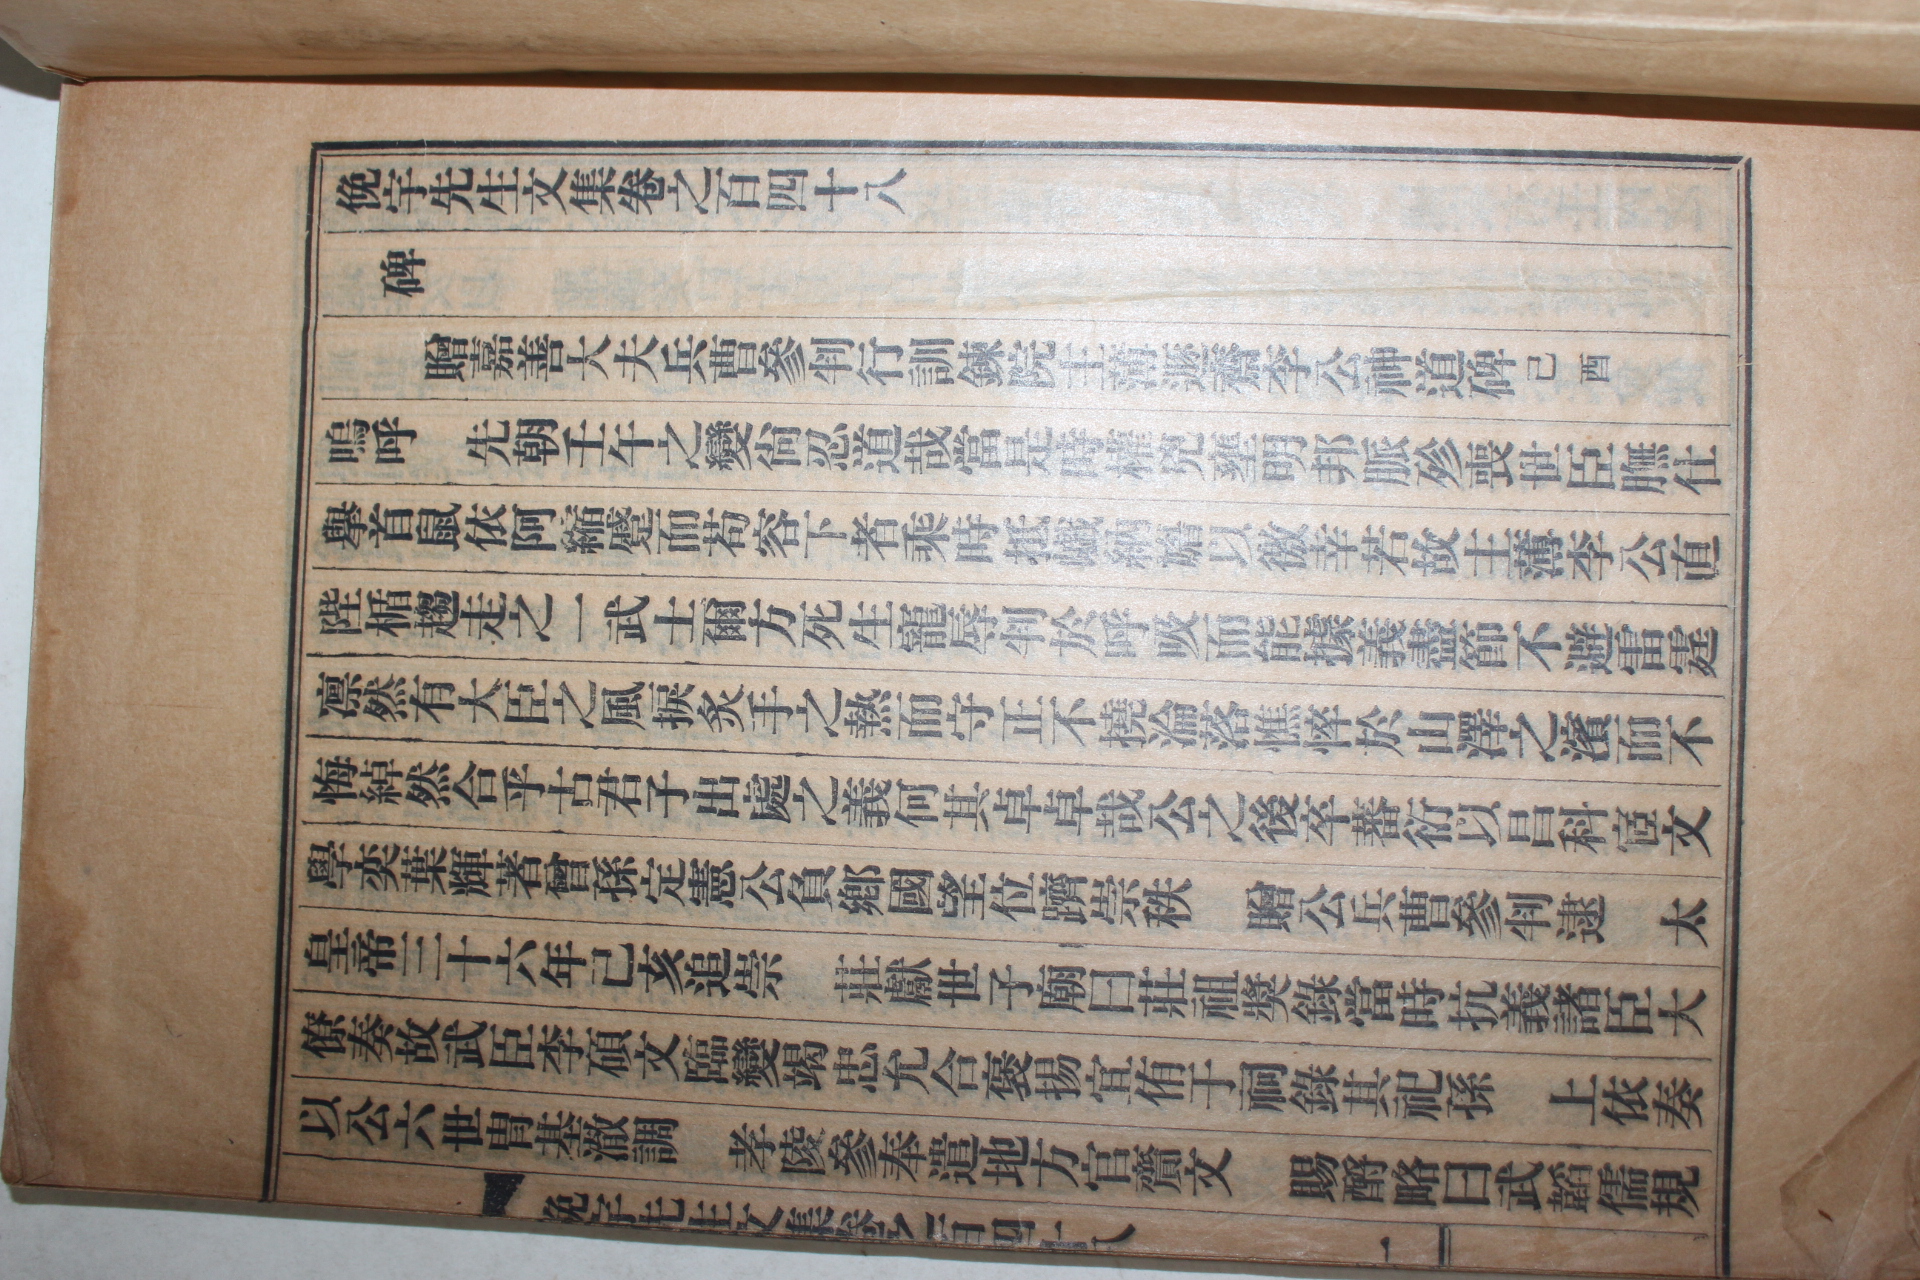 俛宇先生文集卷之百四十八
碑
贈嘉善大夫兵曹參判行訓鍊院主薄遯齋李公神道碑己酉
嗚呼　先朝壬午之變尙忍道哉當是時權兇壅明邦脈殄喪世臣膴仕
擧首鼠依阿縮蹙而苟容下者乘時抵巇納謟以徼幸若故主薄李公直
陛楯趨走之一武士爾方死生寵辱判於呼吸而能據義盡節不避雷霆
凛然有大臣之風捩炙手之熱而守正不撓淪落憔悴於山澤之濱而不
悔綽然合乎古君子出處之義何其卓卓哉公之後卒蕃衍以昌科宦文
學奕葉輝著曾孫定憲公負鄕國望位躋崇秩　贈公兵曹參判逮　太
皇帝三十六年己亥追崇　莊獻世子廟曰莊祖奬錄當時抗義諸臣大
僚奏故武臣李碩文臨變竭忠允合褒揚宜侑于祠錄其祀孫　上依奏
以公六世胄基澈調　孝陵參奉遣地方官齎文　賜酹略曰武韜儒規
俛宇先生文集卷之百四十八　一